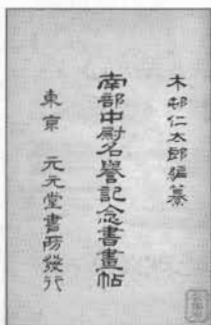 木邨仁太郎編纂
南部中尉名譽記念書畫帖
東京 元元堂書房發行